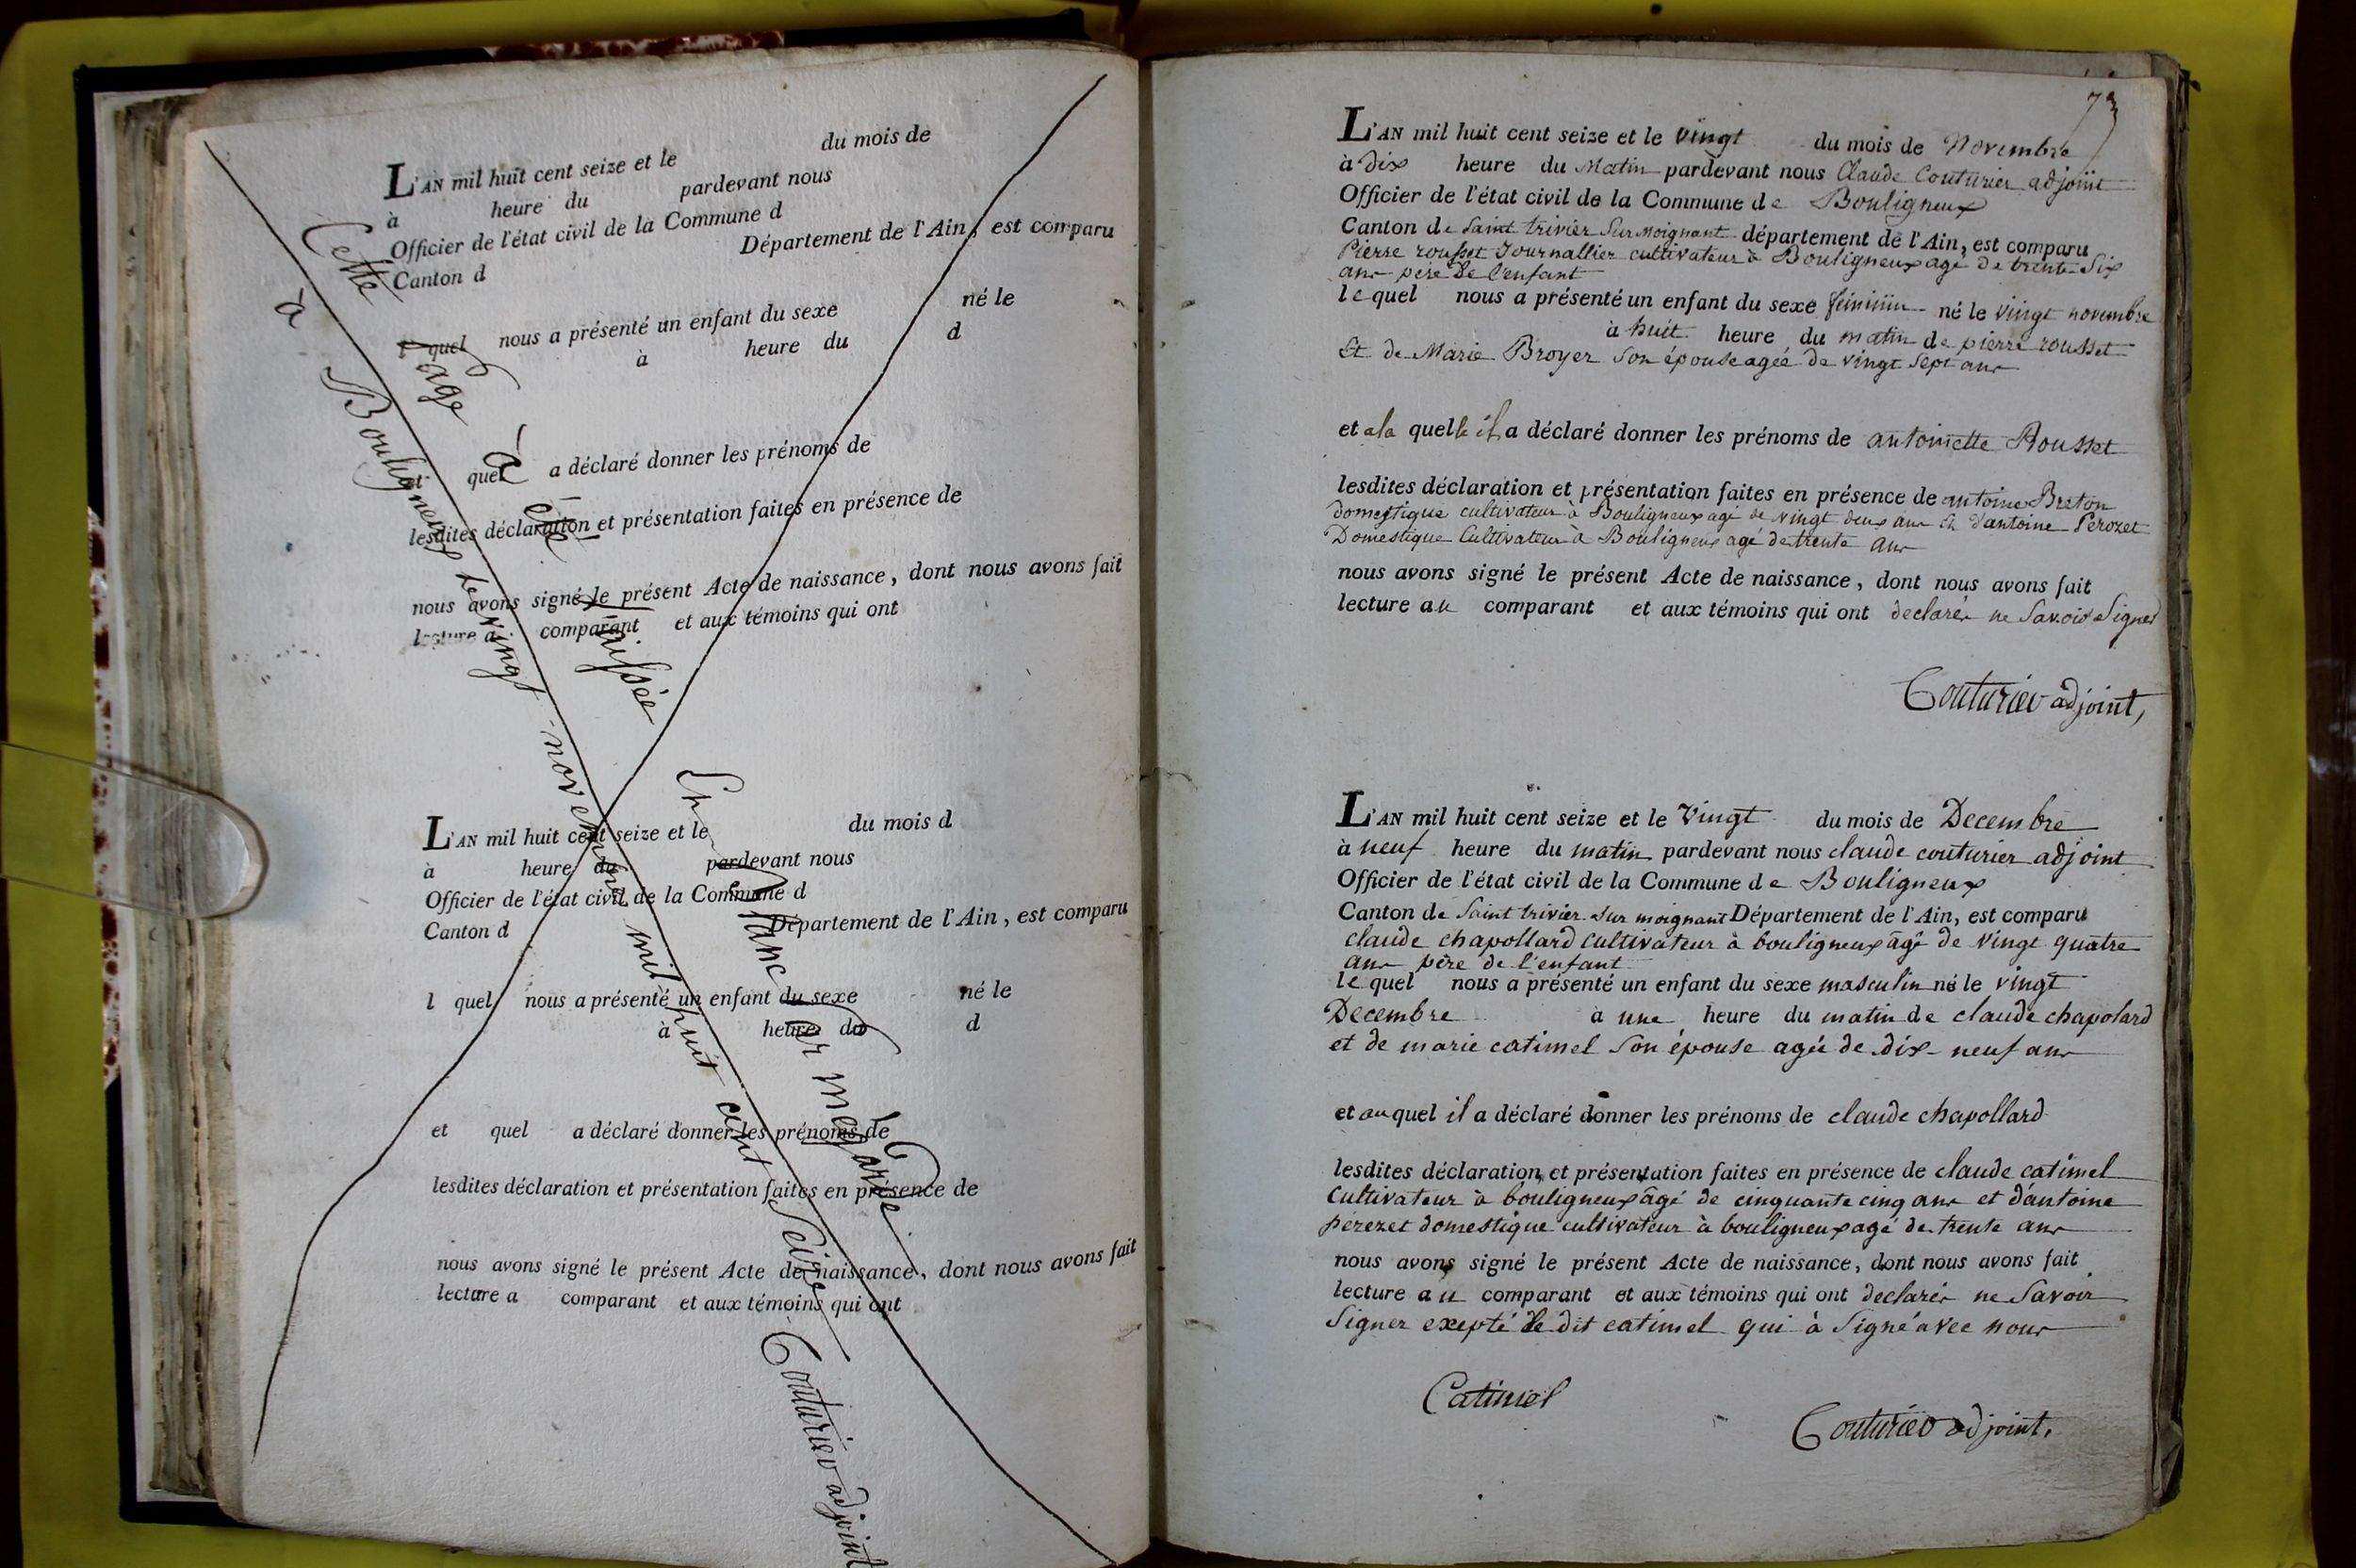 L'AN mil huit cent seize et le du mois de
à heure du pardevant nous
Officier de l'état civil de la Commune d
Canton d Département de l'Ain, est comparu
l quel nous a présenté un enfant du sexe né le
à heure du d
et quel a déclaré donner les prénoms de
lesdites déclaration et présentation faites en présence de
nous avons signé le présent Acte de naissance, dont nous avons fait
lecture a comparant et aux témoins qui ont
L'AN mil huit cent seize et le du mois d
à heure du pardevant nous
Officier de l'état civil de la Commune d
Canton d Département de l'Ain, est comparu
l quel nous a présenté un enfant du sexe né le
à heure du d
et quel a déclaré donner les prénoms de
lesdites déclaration et présentation faites en présence de
nous avons signé le présent Acte de naissance, dont nous avons fait
lecture a comparant et aux témoins qui ont
Cette page a été laissée En blanc par megarde
à Bouligneux le vingt novembre mil huit cent Seize Couturier adjoint
73
L'AN mil huit cent seize et le vingt du mois de Novembre
à dix heure du Matin pardevant nous Claude Couturier adjoint
Officier de l'état civil de la Commune de Bouligneux
Canton de Saint trivier Sur moignant département de l'Ain, est comparu
Pierre rousset Journallier cultivateur à Bouligneux agé de trente Six
ans père de l'enfant
le quel nous a présenté un enfant du sexe féminin né le vingt novembre
à huit heure du matin de pierre rousset
Et de Marie Broyer son épouse agée de vingt sept ans
et a la quelle il a déclaré donner les prénoms de antoinette Rousset
lesdites déclaration et présentation faites en présence de antoine Breton
domestique cultivateur à Bouligneux agé de vingt deux ans et d'antoine Perozet
Domestique Cultivateur à Bouligneux agé de trente ans
nous avons signé le présent Acte de naissance, dont nous avons fait
lecture au comparant et aux témoins qui ont declarés ne Savoir Signer
Couturier adjoint,
L'AN mil huit cent seize et le Vingt du mois de Decembre
à neuf heure du matin pardevant nous claude couturier adjoint
Officier de l'état civil de la Commune de Bouligneux
Canton de Saint trivier sur moignant Département de l'Ain, est comparu
claude chapollard cultivateur à bouligneux âgé de vingt quatre
ans père de l'enfant
le quel nous a présenté un enfant du sexe masculin né le vingt
Decembre à une heure du matin de claude chapolard
et de marie catimel Son épouse agée de dix-neuf ans
et au quel il a déclaré donner les prénoms de claude chapollard
lesdites déclaration et présentation faites en présence de claude catimel
Cultivateur à bouligneux âgé de cinquante cinq ans et d'antoine
perezet domestique cultivateur à bouligneux agé de trente ans
nous avons signé le présent Acte de naissance, dont nous avons fait
lecture au comparant et aux témoins qui ont declarés ne Savoir
Signer exepté le dit catimel qui à Signé avec nous
Catimel
Couturier adjoint.